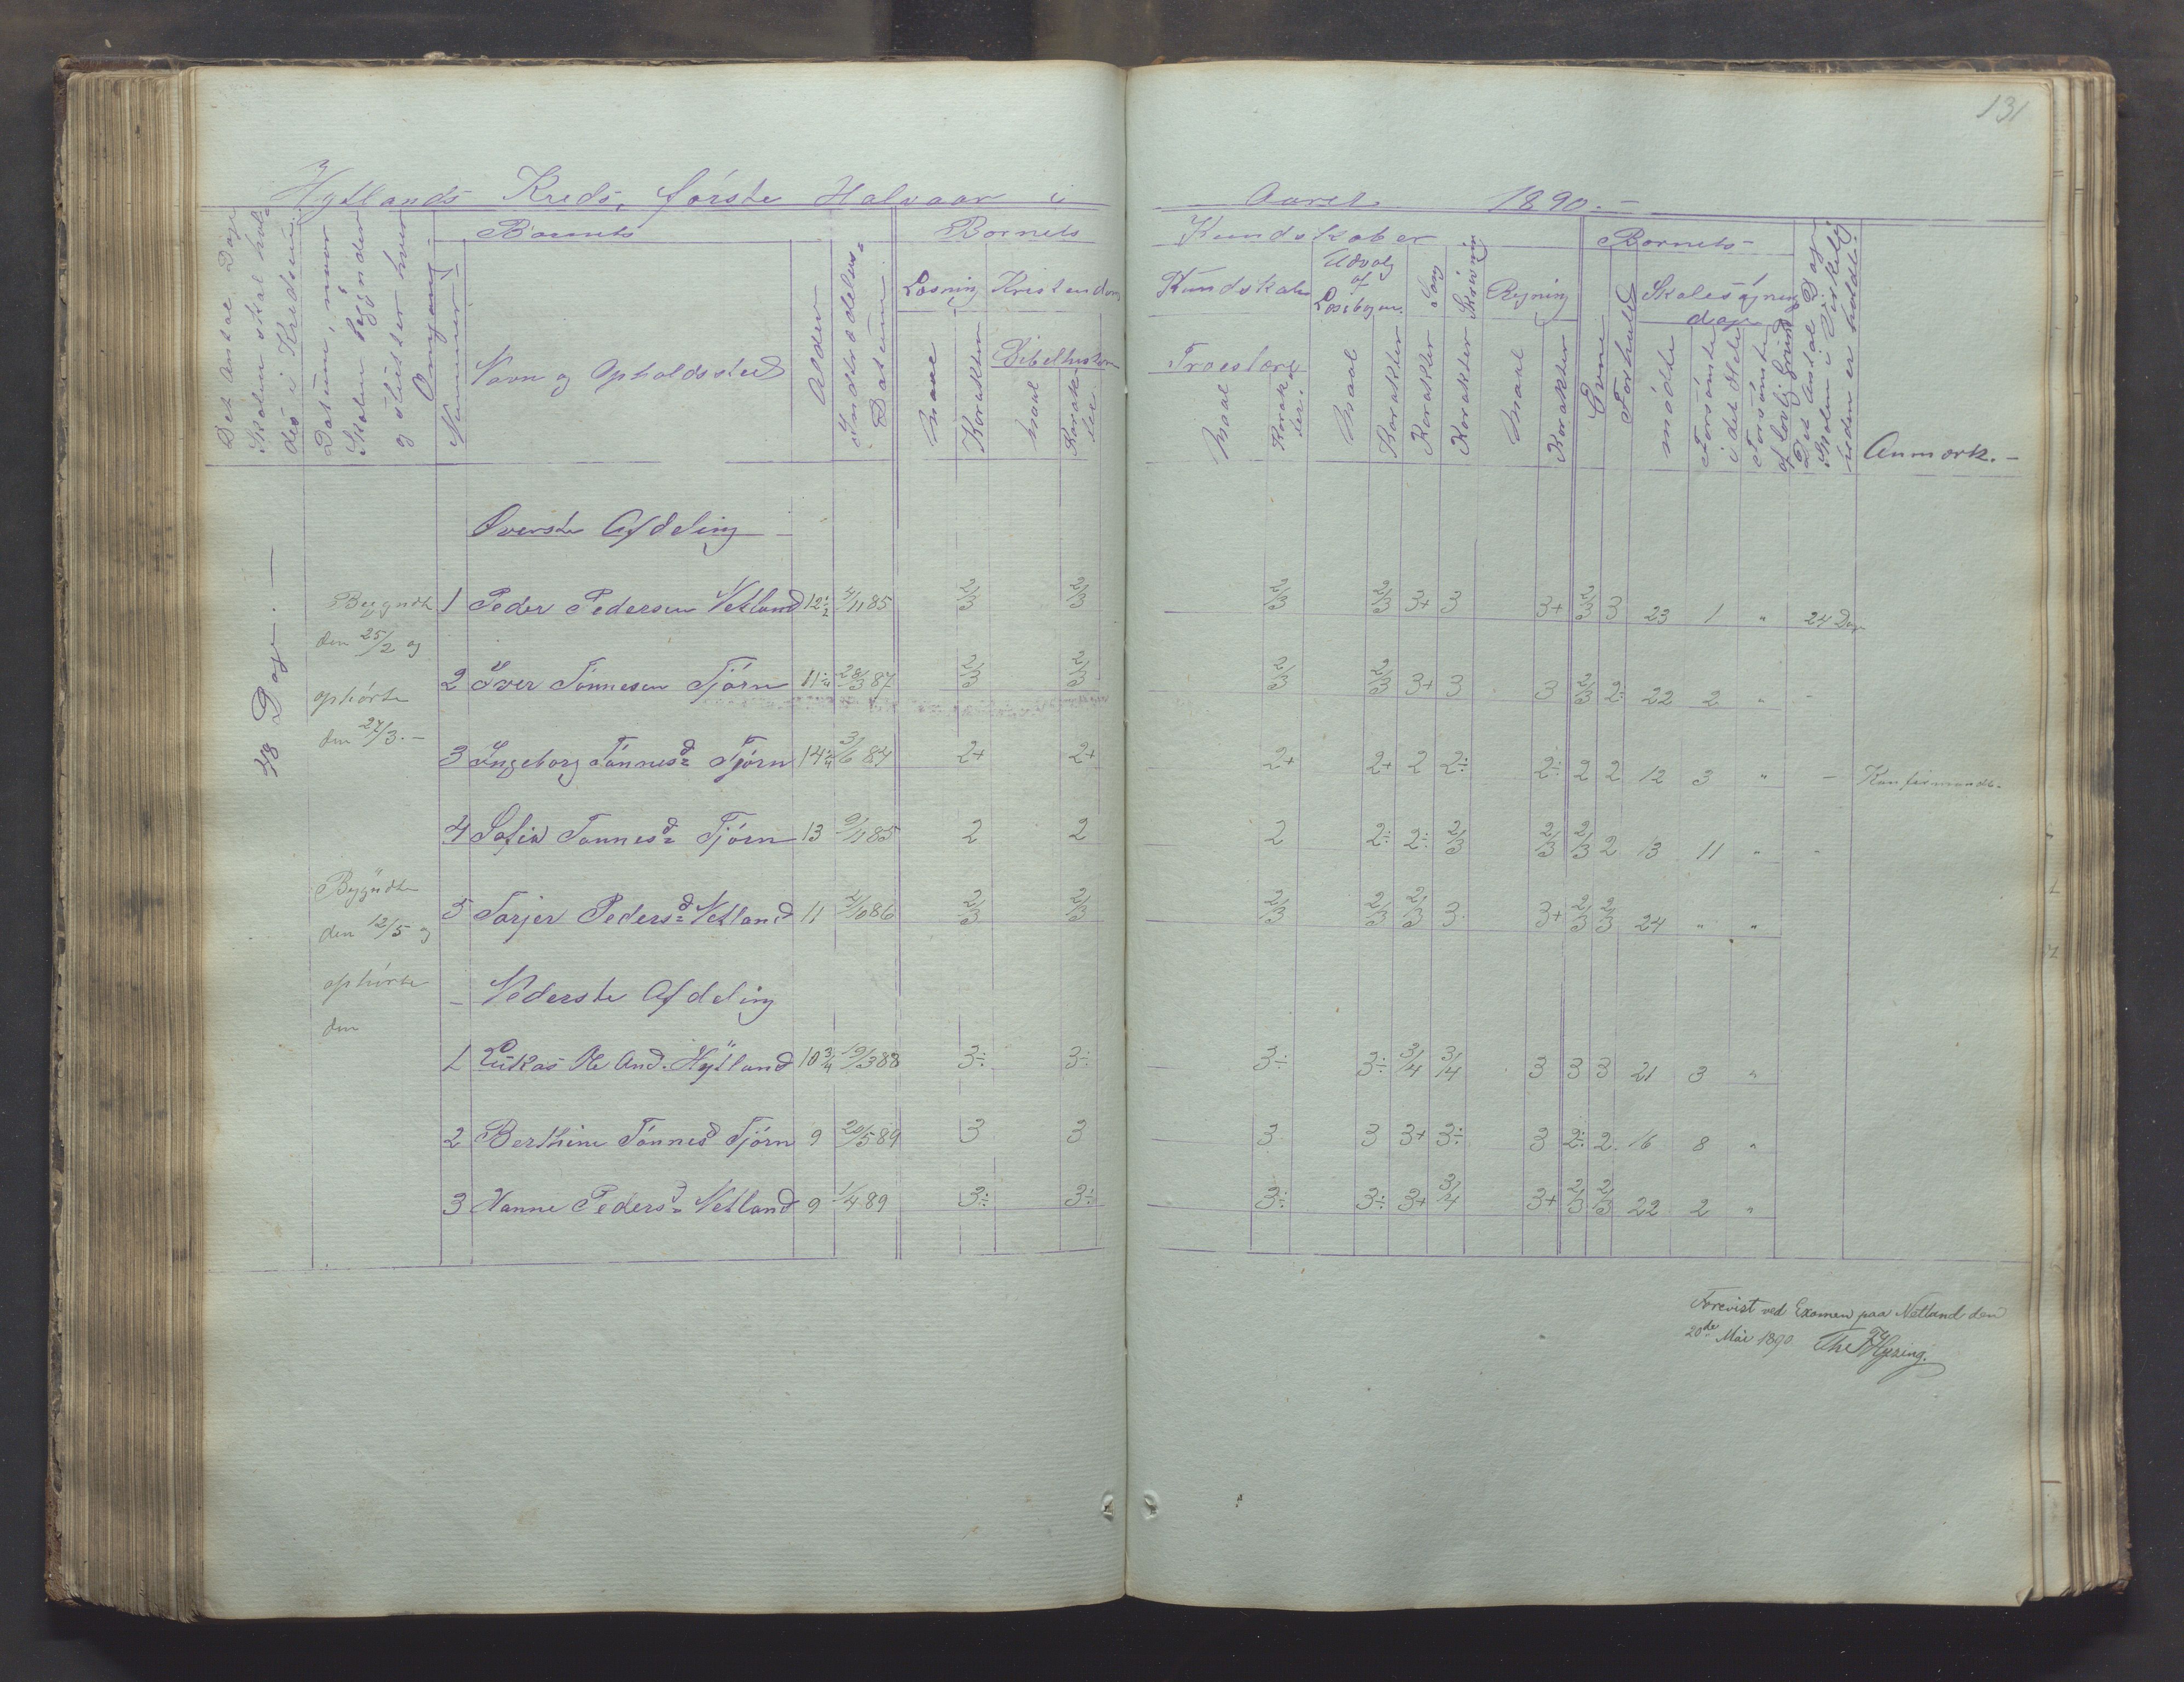 131
Hylland's Kreds, første Halvaar i Aaret 1890. –
Det Antal Dage Skolen skal holdes i Kredsen
Datum, naar Skolen begynder og slutter hver Omgang
Nummer
Barnets
Navn og Opholdssted
Alder
Indtrædelses-Datum
Barnets Kundskaber
Læsning
Maal
Karakter
Kristendoms Kundskab
Bibelhistorie
Maal
Karakter
Troeslære
Maal
Karakter.
Udvalg af Læsebogen.
Maal
Karakter
Sang
Karakter
Skrivning
Karakter
Regning
Maal
Karakter
Barnets –
Evne
Forhold
Skolesøgnedage
mødte
Forsømte i det Hele
Forsømte af lovlig Grund
Det Antal Dage Skolen i Virkelig heden er holdt.
Anmærk. –
48 Dage. —
Begyndte den 25/2 og ophørte den 27/3. –
Begyndte den 12/5 og ophørte den
Øverste Afdeling –
1 Peder Pedersen Netland 12 1/2 4/11 85 2/3 2/3 2/3 2/3 3+ 3 3+ 2/3 3 23 1 " 24 Dage
2 Iver Tønnesen Tjörn 11 1/4 28/3 87 2/3 2/3 2/3 2/3 3+ 3 3 2/3 2÷ 22 2 " -
3 Ingeborg Tönnesd Tjørn 14 1/4 3/6 84 2+ 2+ 2+ 2+ 2 2÷ 2÷ 2 2 12 3 " – Konfirmandt.
4 Sofie Tønnesd Tjörn 13 9/11 85 2 2 2 2÷ 2÷ 2/3 2/3 2/3 2 13 11 " -
5 Torjer Pedersd Netland 11 2/10 86 2/3 2/3 2/3 2/3 2/3 3 3+ 2/3 2/3 24 " "
– Nederste Afdeling
1 Lukas Ole And. Hylland 10 3/4 19/3 88 3÷ 3÷ 3÷ 3÷ 3/4 3/4 3 3 3 21 3 "
2 Berthine Tönnesd Tjörn 9 20/5 89 3 3 3 3 3+ 3÷ 3 2÷ 2 16 8 "
3 Hanne Pedersd Netland 9 1/4 89 3÷ 3÷ 3÷ 3÷ 3+ 3/4 3+ 2/3 2/3 22 2 "
Forevist ved Examen paa Netland den
20de Mai 1890.